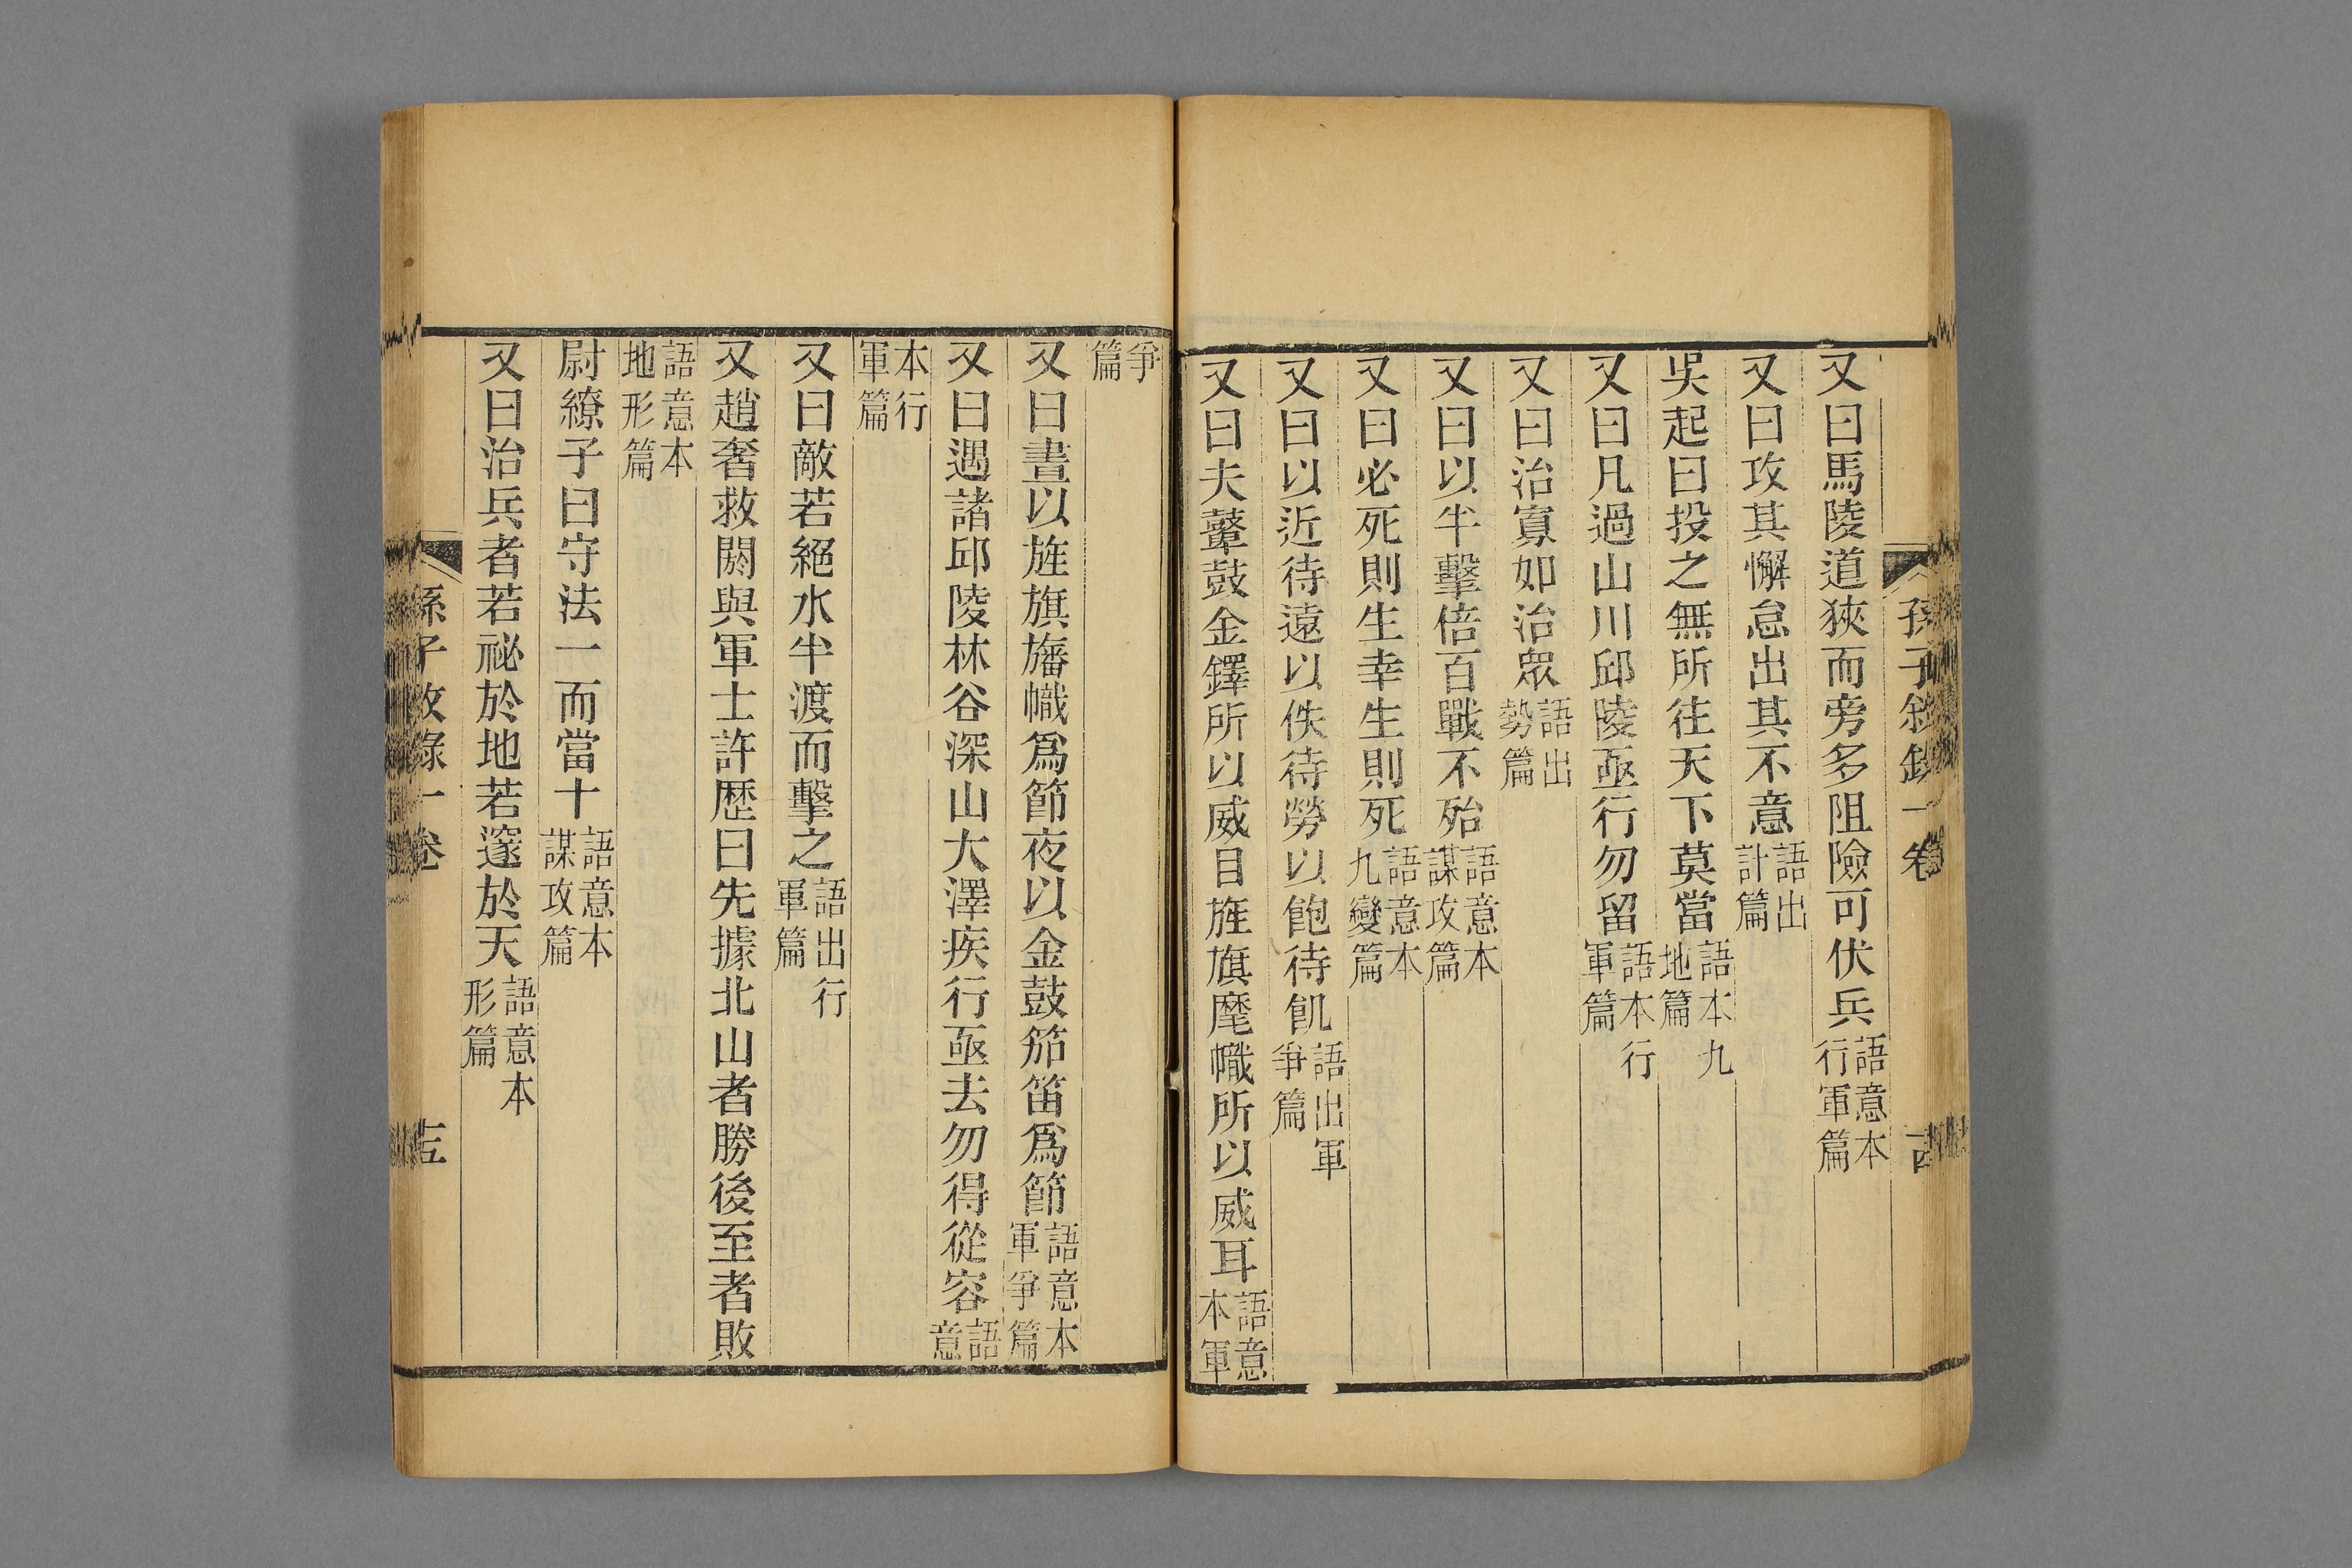 孫子敘錄一卷
又曰馬陵道狹而旁多阻險可伏兵語意本行軍篇
又曰攻其懈怠出其不意語出計篇
吳起曰投之無所往天下莫當語本九地篇
又曰凡過山川邱陵亟行勿留語本行軍篇
又曰治寡如治眾語出勢篇
又曰以半擊倍百戰不殆語意本謀攻篇
又曰必死則生幸生則死語意本九變篇
又曰以近待遠以佚待勞以飽待飢語出軍爭篇
又曰夫鼙鼓金鐸所以威目旌旗麾幟所以威耳語意本軍
爭篇
又曰晝以旌旗旛幟爲節夜以金鼓笳笛爲節語意本軍爭篇
又曰遇諸邱陵林谷深山大澤疾行亟去勿得從容語意
本行軍篇
又曰敵若絕水半渡而擊之語出行軍篇
又趙奢救閼與軍士許歷曰先據北山者勝後至者敗
語意本地形篇
尉繚子曰守法一而當十語意本謀攻篇
又曰治兵者若祕於地若邃於天語意本形篇